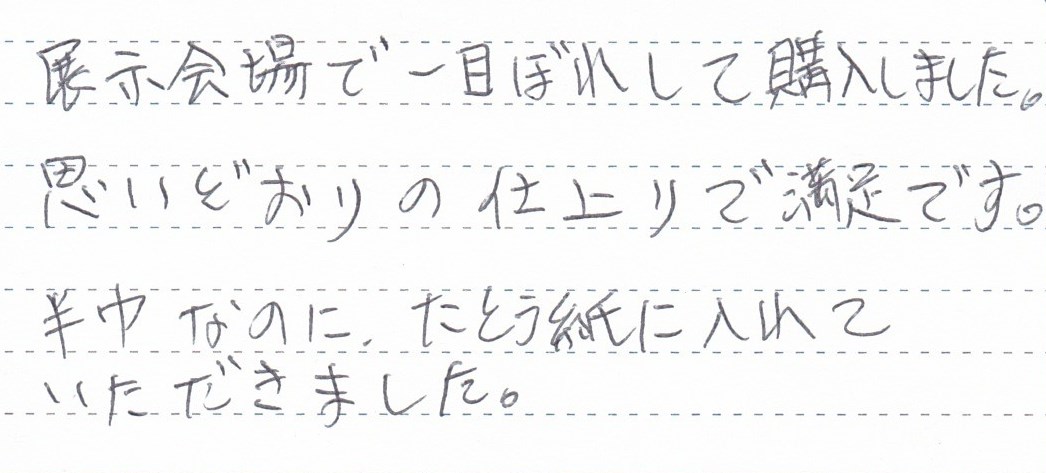 展示会場で一目ぼれして購入しました。
思いどおりの仕上りで満足です。
半巾なのに、たとう紙に入れて
いただきました。